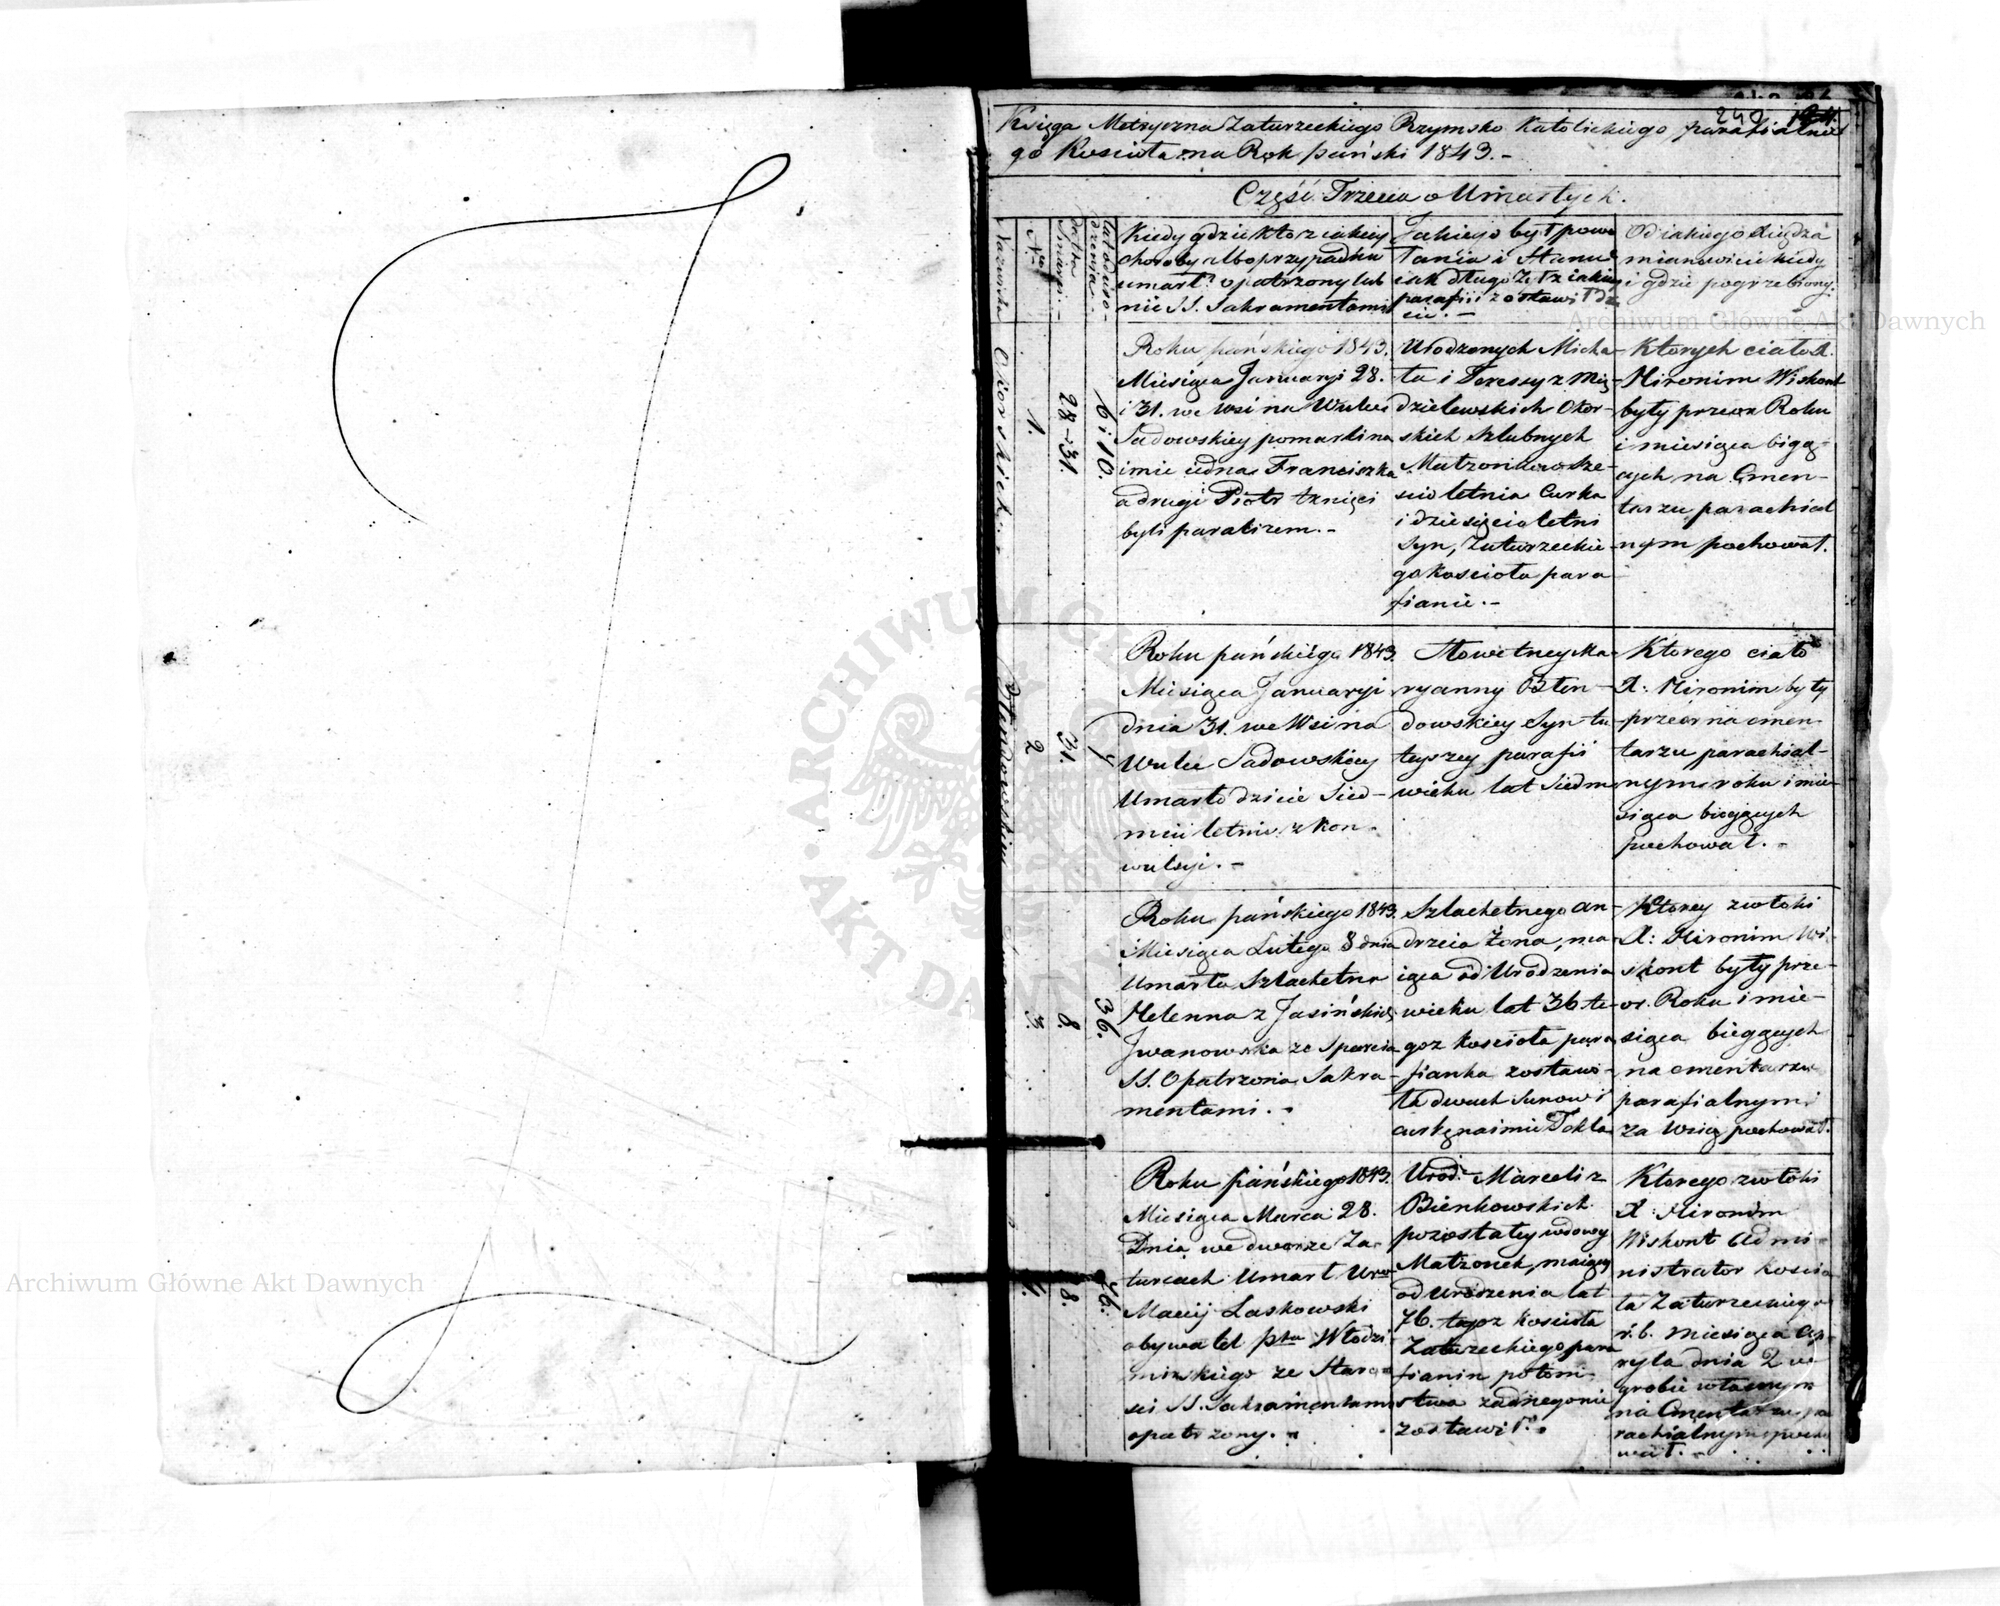 242
Księga Metryczna Zaturzeckiego Rzymsko Katolickiego parafialne
go Koscioła na Rok pański 1843.-
Część Trzecia o Umarłych.
Nazwiska
Nro
Data Smierci.-
Lat od uro-
dzenia.-
Kiedy gdzie kto z iakiey
choroby albo przypadku
umarł? opatrzony lub
nie SS. Sakramentami
Jakiego był powo
łania i Stanu
iak długo żył z iakiey
parafii zostawił dz
cie.-
Od iakiego Xiędza
mianowicie kiedy
i gdzie pogrzebiony.
Okorskich.-
1.
28-31.
6 i 10.
Roku pańskiego 1843.
Miesiąca Januaryi 28.
i 31. we wsi na Wulce
Sadowskiey pomarli na
imie iedna Franciszka
a drugi Piotr tknięci
byli paralizem.-
Urodzonych Micha-
ła i Teressy z Mię-
dzielewskich Okor-
skich szlubnych
Małzonkow Sze-
scio letnia Curka
i dziesięcioletni
Syn, Zaturzeckie-
go Kościoła para-
fianie.-
Ktorych ciała X.
Hironim Wiskont
były przeor Roku
i miesiąca bigą-
cych na Cmen-
tarzu parachial
nym pochował.
2
31.
7
Roku pańskiego 1843.
Miesiąca Januaryi
dnia 31. we Wsi na
Wulce Sadowskiey
Umarło dziecie Sied-
mio letnie z kon-
wulsyi.-
Słowetney Ma-
ryanny Błen-
dowskiey Syn tu
teyszey parafii
wieku lat Siedm
Ktorego ciało
X: Hironim były
przeor na cmen
tarzu parachial-
nym roku i mie-
siąca bieżących
pochował.-
3.
8.
36.
Roku pańskiego 1843.
Miesiąca Lutego 8 dnia
Umarła Szlachetna
Helenna z Jasińskich
Jwanowska ze Sparcia
SS. Opatrzona Sakra-
mentami.-
Szlachetnego An-
drzeia Żona, ma-
iąca od Urodzenia
wieku lat 36 te-
goz kościoła para
fianka zostawi-
ła dwuch Synow i
curkę na imie Tekla
Ktorey zwłoki
X: Hironim Wi-
skont były prze-
or. Roku i mie-
siąca bieżących
na cmentarzu
parafialnym
za Wsią pochował.
4.
28.
76.
Roku pańskiego 1843.
Miesiąca Marca 28.
Dnia we dworze Za-
turcach Umarł Uro
Maciej Laskowski
obywatel ptu Włodzi
mirskiego ze Staro-
sci SS. Sakramentami
opatrzony.-
Urod: Marceli z
Bienkowskich
pozostałey wdowy
Małzonek, maiący
od urodzenia lat
76. tegoz Kościoła
Zaturzeckiego para
fianin potom-
stwa zadnego nie
zostawił.-
Ktorego zwłoki
X: Hironim
Wiskont Admi-
nistrator koscio
ła Zaturzeckiego
r.b. miesiąca Ap-
ryla dnia 2 we
grobie własnym
na Cmentarzu pa
rachialnym pocho
wał.-
Archiwum Główne Akt Dawnych
Archiwum Główne Akt Dawnych
ARCHIWUM GŁÓWNE AKT DAWNYCH